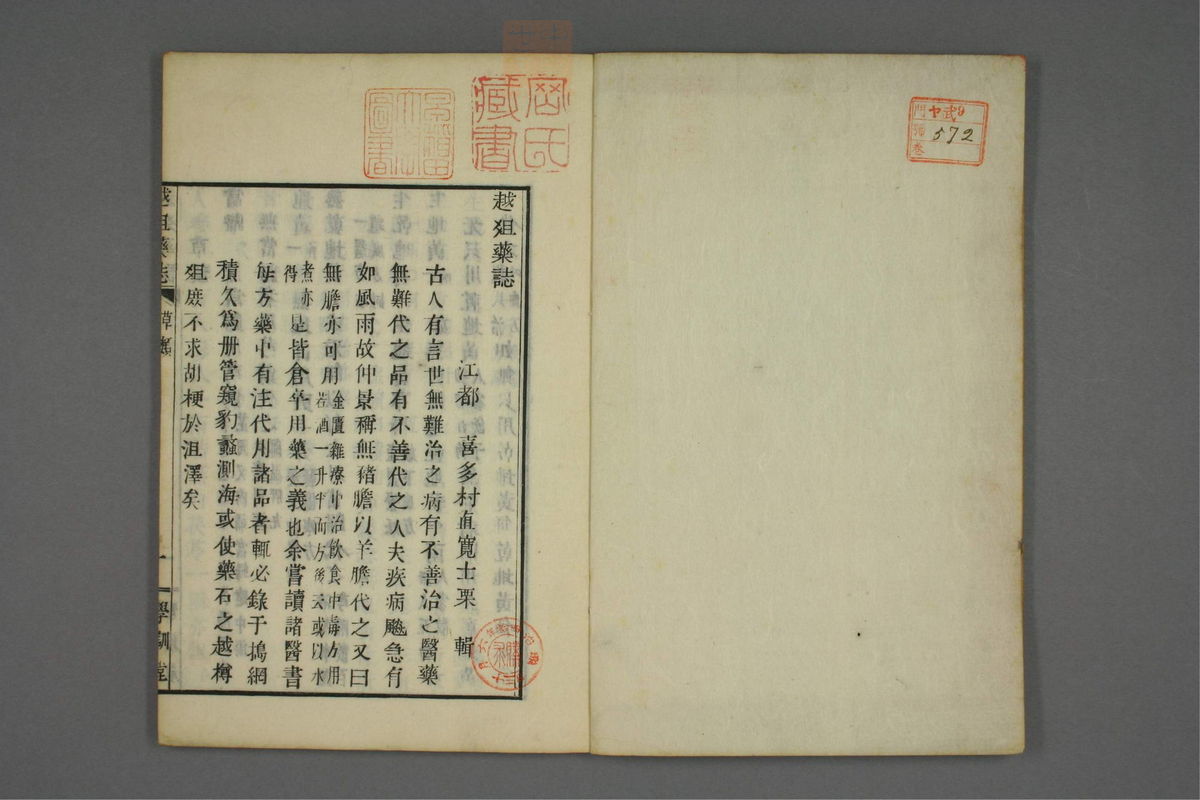 門ヤ武9
號 572
卷
岡氏
藏書
越爼藥誌
江都 喜多村直寬士栗 輯
古人有言世無難治之病有不善治之醫藥
無難代之品有不善代之人夫疾病颷急有
如風雨故仲景稱無豬膽以羊膽代之又曰
無膽亦可用金匱雜療中治飲食中毒方用
苦酒一升半而方後云或以水
煮亦
得是皆倉卒用藥之義也余嘗讀諸醫書
每方藥中有注代用諸品者輒必錄于搗網
積久爲册管窺豹蠡測海或使藥石之越樽
爼庶不求胡梗於沮澤矣
越爼藥誌 草類 一 學訓堂